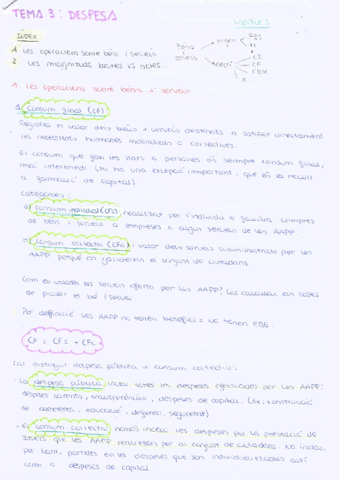 TEMA 3: DESPESA
ÍNDEX
1. Les operacions sobre béns i serveis
2. Les magnituds brutes vs netes.
1. Les operacions sobre béns i serveis
Consum final (CF)
Registra el valor dels béns i serveis destinats a satisfer directament
les necessitats humanes individuals o col·lectives.
El consum que fan les llars o persones és sempre consum final,
mai intermedi (hi ha una excepció important, que és
formació de capital)
categories:
a) consum individual (CFi): per l'individu o famílies, compres
de béns i serveis a empreses o algun serveis de les AAPP.
b) consum col·lectiu (CFc): valor dels serveis subministrats per les
AAPP perquè en gaudeixin el conjunt de ciutadans.
Com es valoren els serveis oferts per les AAPP? Es calculen en costos
de produir el bé i servei
Per definició les AAPP no tenen benefici = no tenen EBE.
CF = CFi + CFc
Cal distingir despesa pública i consum col·lectiu:
· La despesa pública inclou totes les despeses efectuades per les AAPP:
despesa corrent, transferències, despeses de capital. (Ex: construcció
de carreteres, educació, defensa, seguretat).
· El consum col·lectiu només inclou les despeses per la prestació de
serveis que les AAPP realitzen per al conjunt de ciutadans. No inclou,
per tant, partides en les despeses que són individualitzades així
com a despeses de capital